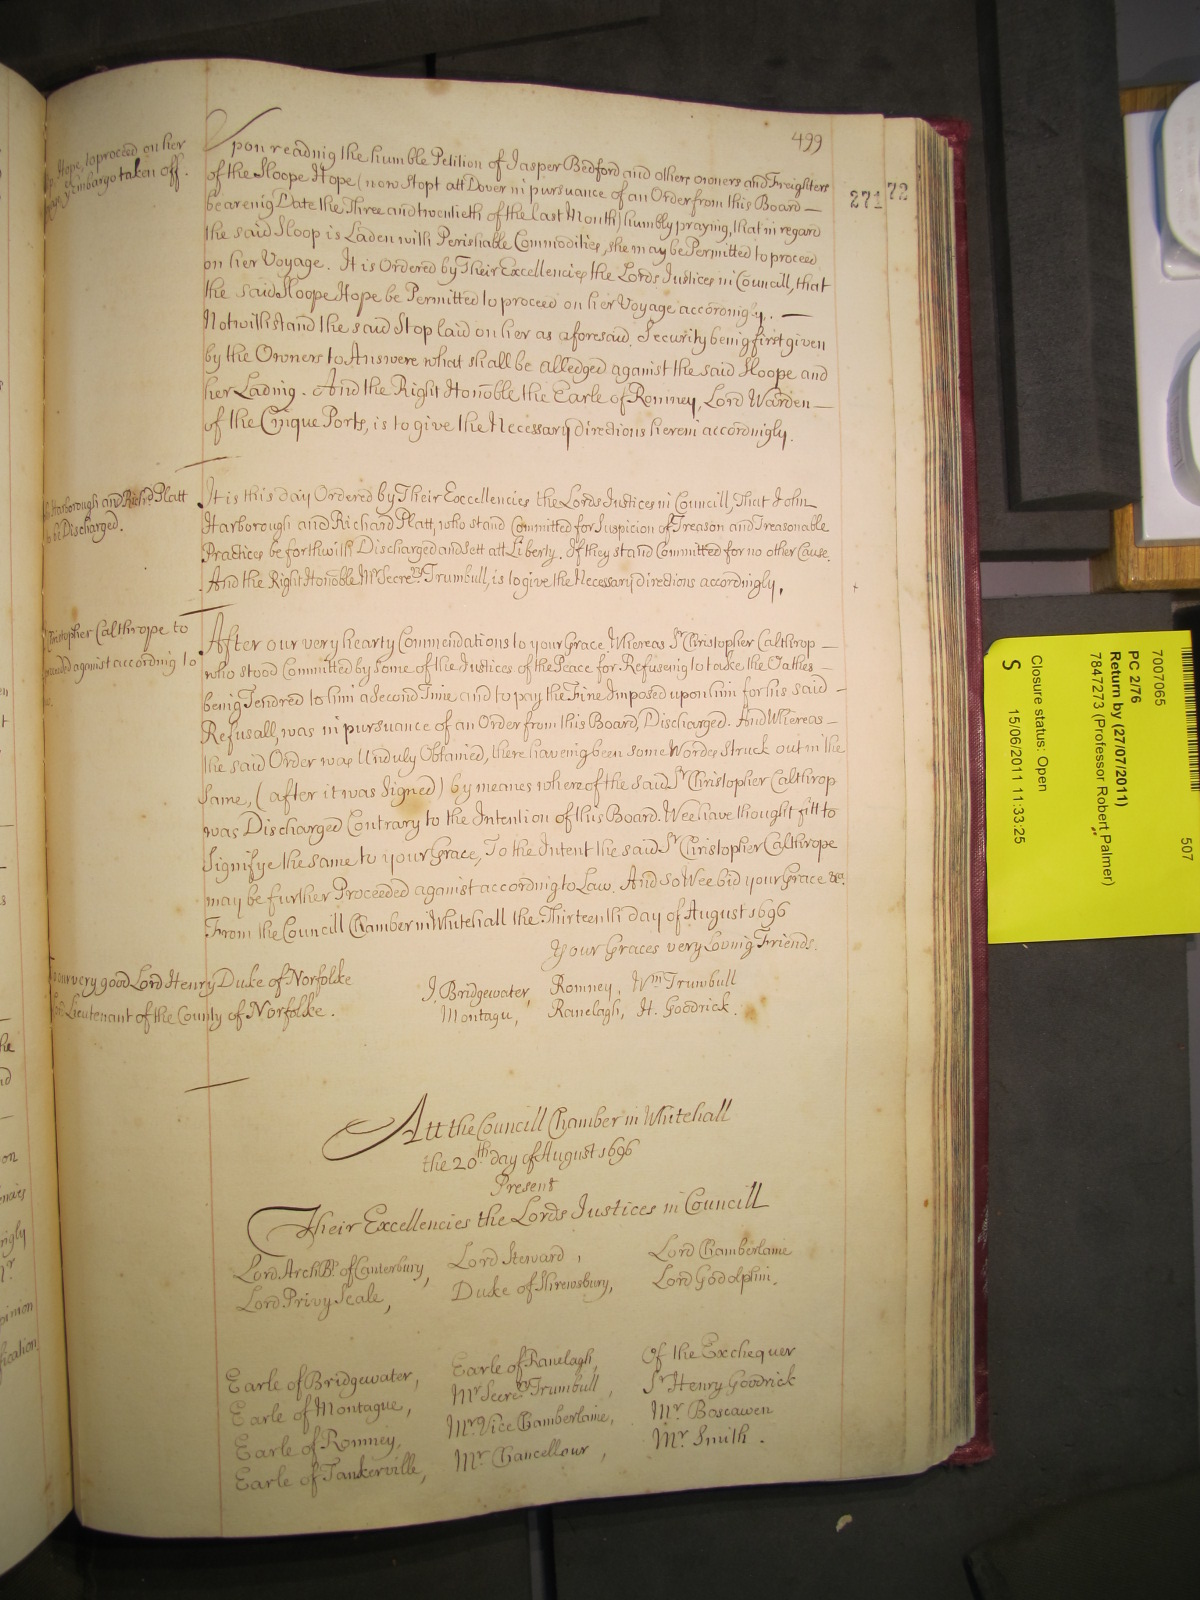 499
271 72
Hope, to proceed on her
embargo taken off.
Upon reading the humble Petition of Jasper Bedford and others owners and Freighters
of the Sloope Hope (now Stopt att Dover in pursuance of an Order from this Board —
bearing Date the Three and twentieth of the last Month) humbly praying, that in regard
the said Sloop is Laden with Perishable Commodities, she may be Permitted to proceed
on her Voyage. It is Ordered by Their Excellencies the Lords Justices in Councill, that
the said Sloope Hope be Permitted to proceed on her Voyage accordingly. —
Notwithstand the said Stop laid on her as aforesaid. Security being first given
by the Owners to Answere what shall be alledged against the said Sloope and
her Lading. And the Right Honoble the Earle of Romney, Lord Warden —
of the Cinque Ports, is to give the Necessary directions herein accordingly.
Harborough and Richd. Platt
to be Discharged.
It is this day Ordered by Their Excellencies the Lords Justices in Councill, That John
Harborough and Richard Platt, who stand Committed for Suspicion of Treason and Treasonable
Practices be forthwith Discharged and sett att Liberty. If they stand Committed for no other Cause.
And the Right Honoble Mr Secrery Trumbull, is to give the Necessary directions accordingly.
Christopher Calthrope to
proceeded against according to
After our very hearty Commendations to your Grace. Whereas Sr Christopher Calthrop —
who stood Committed by some of the Justices of the Peace for Refuseing to take the Oathes —
being Tendred to him a Second Time and to pay the Fine Imposed upon him for his said —
Refusall, was in pursuance of an Order from this Board, Discharged. And Whereas —
the said Order was Unduly Obtained, there haveing been some Wordes Struck out in the
same, (after it was Signed) by meanes whereof the said Sr Christopher Calthrop
was Discharged Contrary to the Intention of this Board. Wee have thought fitt to
Signifye the same to your Grace, To the Intent the said Sr Christopher Calthrope
may be further Proceeded against according to Law. And so Wee bid your Grace &ca.
From the Councill Chamber in Whitehall the Thirteenth day of August 1696
Your Graces very Loving Friends.
our very good Lord Henry Duke of Norfolke
Lieutenant of the County of Norfolke.
J. Bridgewater, Romney, Wm Trumbull
Montagu, Ranelagh, H. Goodrick.
Att the Councill Chamber in Whitehall
the 20th day of August 1696
Present
Their Excellencies the Lords Justices in Councill
Lord ArchBp. of Canterbury, Lord Steward, Lord Chamberlaine
Lord Privy Seale, Duke of Shrewsbury, Lord Godolphin.
Earle of Bridgewater, Earle of Ranelagh, Of the Exchequer
Earle of Montague, Mr Secrery Trumbull, Sr Henry Goodrick
Earle of Romney, Mr Vice Chamberlaine, Mr Boscawen
Earle of Tankerville, Mr Chancellour, Mr Smith.
7007065 507
PC 2/76
Return by (27/07/2011)
7847273 (Professor Robert Palmer)
Closure status: Open
S 15/06/2011 11:33:25